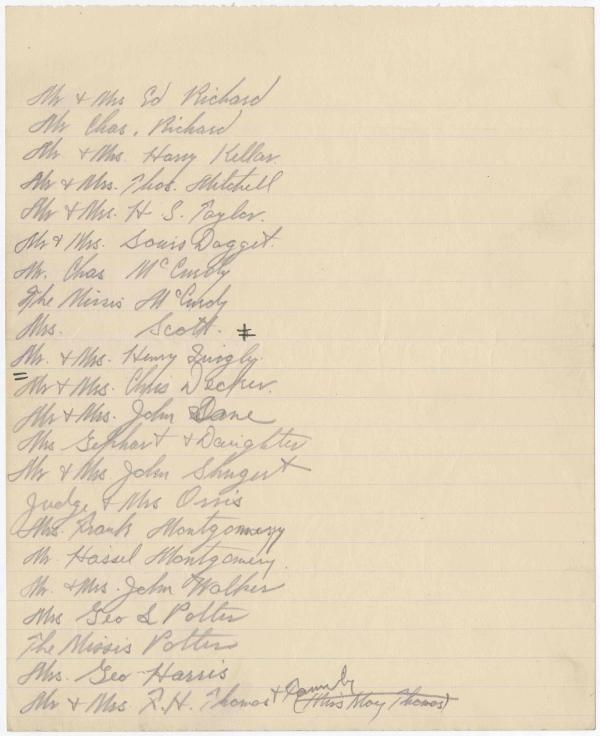 Mr & Mrs Ed Richard
Mr Chas. Richard
Mr & Mrs. Harry Kellar.
Mr & Mrs. Thos. Mitchell
Mr & Mrs. H. S. Taylor.
Mr & Mrs. Louis Dagget.
Mr. Chas McCurdy
The Misses McCurdy
Mrs. Scott. ‡
Mr. & Mrs. Henry Quigly.
=
Mr & Mrs. Chris Decker.
Mr & Mrs. John Lane
Mrs Gephart & Daughter
Mr & Mrs. John Shugert
Judge & Mrs Orvis
Mrs. Frank Montgomery
Mr. Hassel Montgomery.
Mr. & Mrs. John Walker
Mrs Geo L Potter
The Missis Potter
Mrs. Geo Harris
Mr & Mrs. F. H. Thomas & Family (Miss May Thomas)